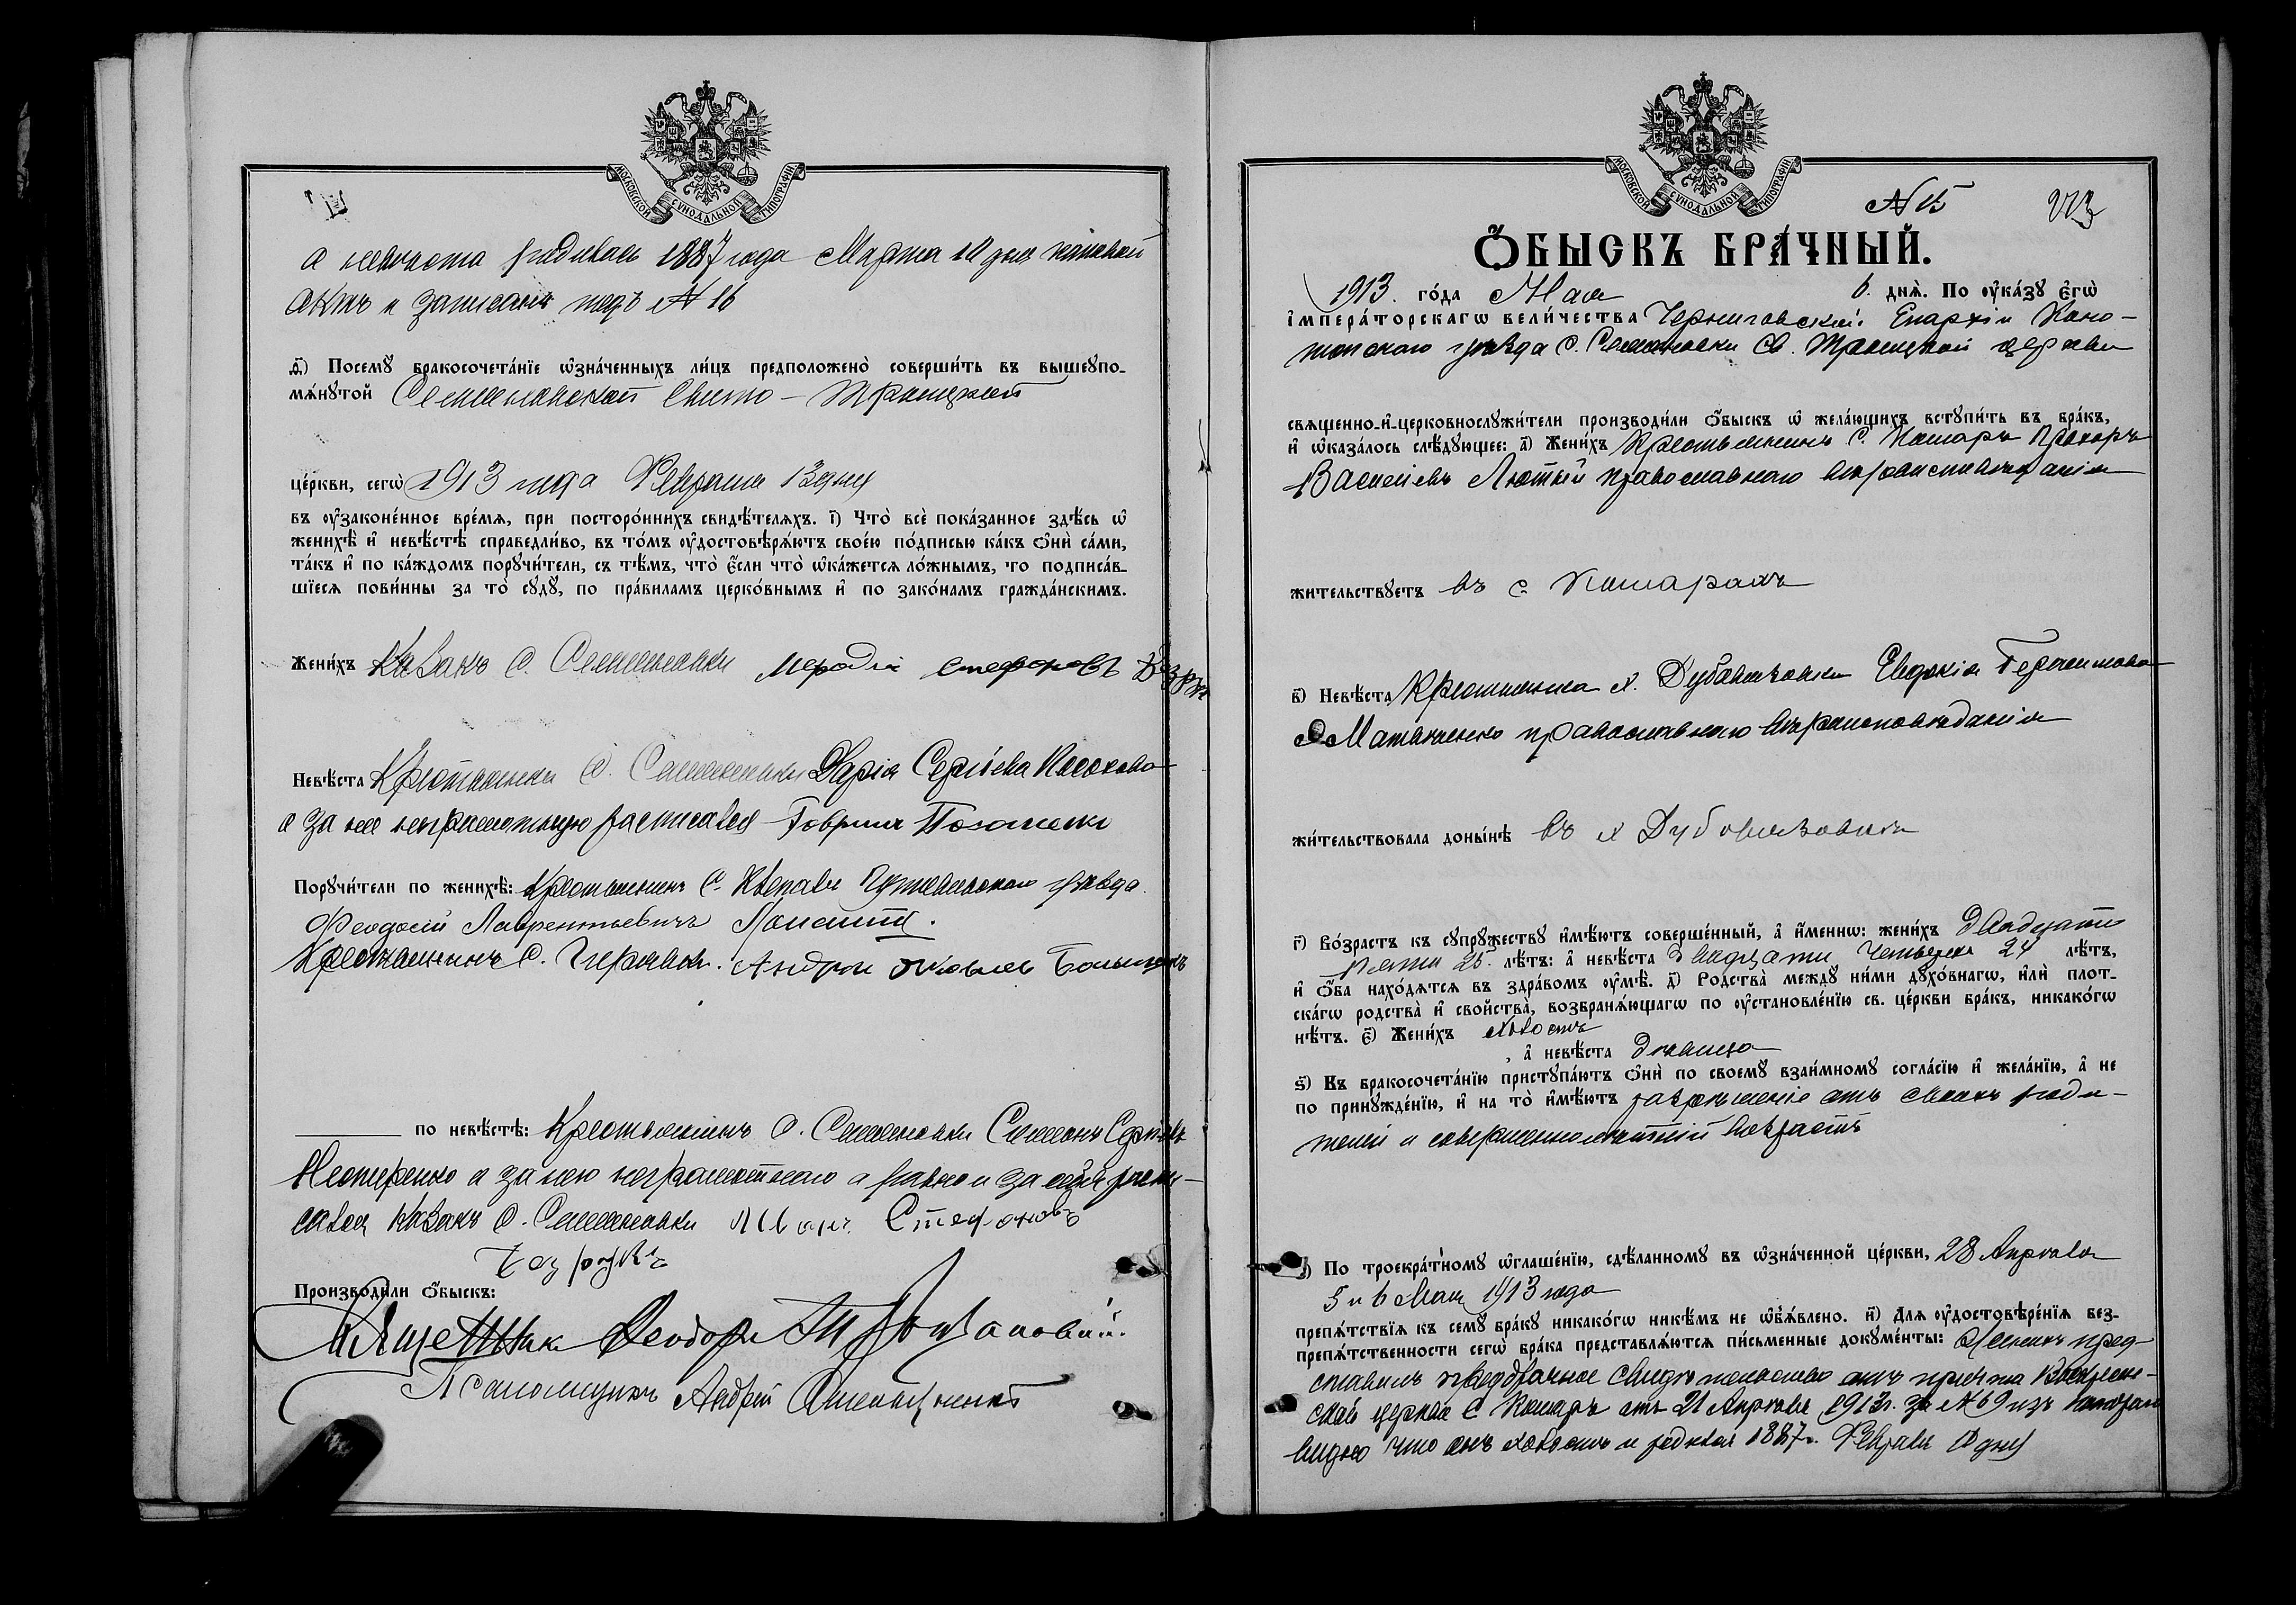 МОСКОВСКОЙ СѴНОДАЛЬНОЙ ТИПОГРАФІИ
а невѣста родилась 1887 года Марта 10 дня каковой
актъ и записанъ подъ № 16
д҃і) Посемꙋ бракосочета́нїе ѡ҆зна́ченныхъ ли́цъ предположено̀ соверши́ть въ вышеꙋпо-
мѧ́нꙋтой Семеновской Свято-Троицкой
це́ркви, сегѡ̀ 1913 года Февраля 13 дня
въ ᲂу҆законе́нное вре́мѧ, при посторо́ннихъ свидѣ́телѧхъ. і҃) Что̀ всѐ пока́занное здѣ́сь ѡ҆
женихѣ̀ и҆ невѣ́стѣ справедли́во, въ то́мъ ᲂу҆достовѣрѧ́ютъ свое́ю по́дписью ка́къ ѻ҆нѝ са́ми,
та́къ и҆ по ка́ждомъ порꙋчи́тели, съ тѣ́мъ, что̀ є҆́сли что̀ ѡ҆ка́жетсѧ ло́жнымъ, то подписа́в-
шїесѧ пови́нны за то̀ сꙋдꙋ̀, по пра́виламъ церко́внымъ и҆ по зако́намъ гражда́нскимъ.
Жени́хъ Казакъ с. Семеновки Иродіи Стефановъ
Невѣ́ста Крестьянка с. Семеновки Дарія Сергіева
а за нее неграмотную расписался Гавриил
Порꙋчи́тели по женихѣ̀: Крестьянинъ с. уѣзда
Феодосій Лаврентьевичъ
Крестьянинъ с. Андрей Яковлев
по невѣ́стѣ: Крестьянинъ с. Семеновки Симеонъ
Нестеренко а за него неграмотнаго а равно и за себя распи-
сался казакъ с. Семеновки Иван Стефановъ
Производи́ли ѻ҆́быскъ:
Священникъ Феодоръ
Псаломщикъ Андрей
МОСКОВСКОЙ СѴНОДАЛЬНОЙ ТИПОГРАФІИ
№ 15
Ѻ҆́БЫСКЪ БРА́ЧНЫЙ.
1913. го́да Мая 6. днѧ̀. По ᲂу҆ка́зꙋ є҆гѡ̀
і҆мпера́торскагѡ вели́чества Черниговской Епархіи Коно-
топскаго уѣзда с. Семеновки Св. Троицкой церкви
свѧщенно-и҆-церковнослꙋжи́тели производи́ли ѻ҆́быскъ ѡ҆ жела́ющихъ встꙋпи́ть въ бра́къ,
и҆ ѡ҆каза́лось слѣ́дꙋющее: а҃) Жени́хъ Крестьянинъ с. Кошаръ Прохоръ
Васильевъ Лютый православнаго вѣроисповѣданія
жительствꙋетъ въ с. Кошарахъ
в҃) Невѣ́ста Крестьянка х. Дубовязовки Евдокія Герасимова
Матвіенко православнаго вѣроисповѣданія
жи́тельствовала доны́нѣ въ х Дубовязовки
г҃) Во́зрастъ къ сꙋпрꙋ́жествꙋ и҆мѣ́ютъ соверше́нный, а҆ и҆́меннѡ: жени́хъ двадцати
пяти 25. лѣ́тъ: а҆ невѣ́ста двадцати четырех 24 лѣ́тъ,
и҆ ѻ҆́ба нахо́дѧтсѧ въ здра́вомъ ᲂу҆мѣ̀. д҃) Родства̀ междꙋ ни́ми дꙋхо́внагѡ, и҆лѝ плот-
ска́гѡ родства̀ и҆ сво́йства, возбранѧ́ющагѡ по ᲂу҆становле́нїю св. це́ркви бра́къ, никако́гѡ
нѣ́тъ. є҃) Жени́хъ холостъ
, а҆ невѣ́ста дѣвица
ѕ҃) Къ бракосочета́нїю пристꙋпа́ютъ ѻ҆нѝ по своемꙋ̀ взаи́мномꙋ согла́сїю и҆ жела́нїю, а҆ не
по принꙋжде́нїю, и҆ на то̀ и҆мѣ́ютъ разрѣшеніе отъ своихъ роди-
телей и совершеннолѣтній возрастъ
По троекра́тномꙋ ѡ҆глаше́нїю, сдѣ́ланномꙋ въ ѡ҆зна́ченной це́ркви, 28 Апрѣля
5 и 6 Мая 1913 года
препѧ́тствїѧ къ семꙋ̀ бра́кꙋ никако́гѡ никѣ́мъ не ѡ҆б̾ѧ́влено. и҃) Для ᲂу҆достовѣре́нїѧ без-
препѧ́тственности сегѡ̀ бра́ка представлѧ́ютсѧ пи́сьменные докꙋме́нты: Женихъ пред-
ставилъ предбрачное свидѣтельство отъ причта Воскресен-
ской церкви с Кошаръ отъ 21 Апрѣля 1913 г. за № 69 изъ котораго
видно что онъ холостъ и родился 1887 г. Февраля 10 дня